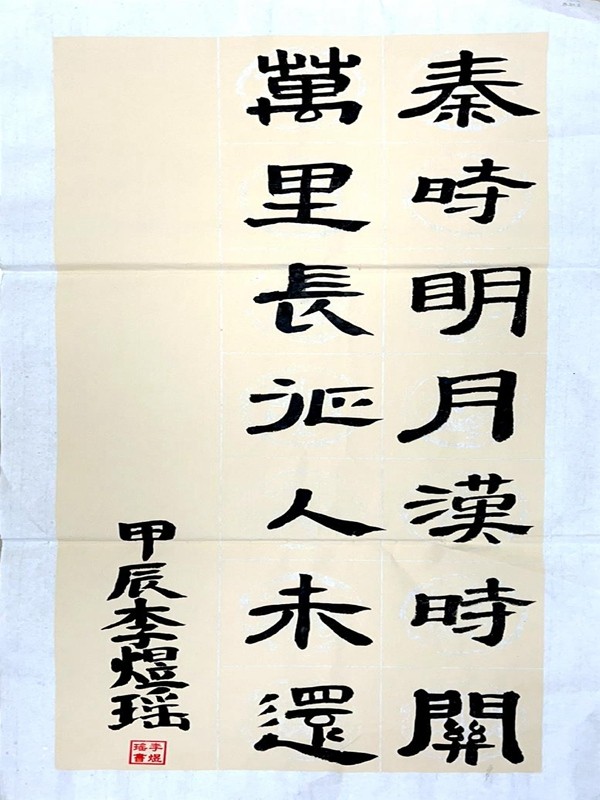 秦時明月漢時關
萬里長征人未還
甲辰李煜瑶
李煜瑶書